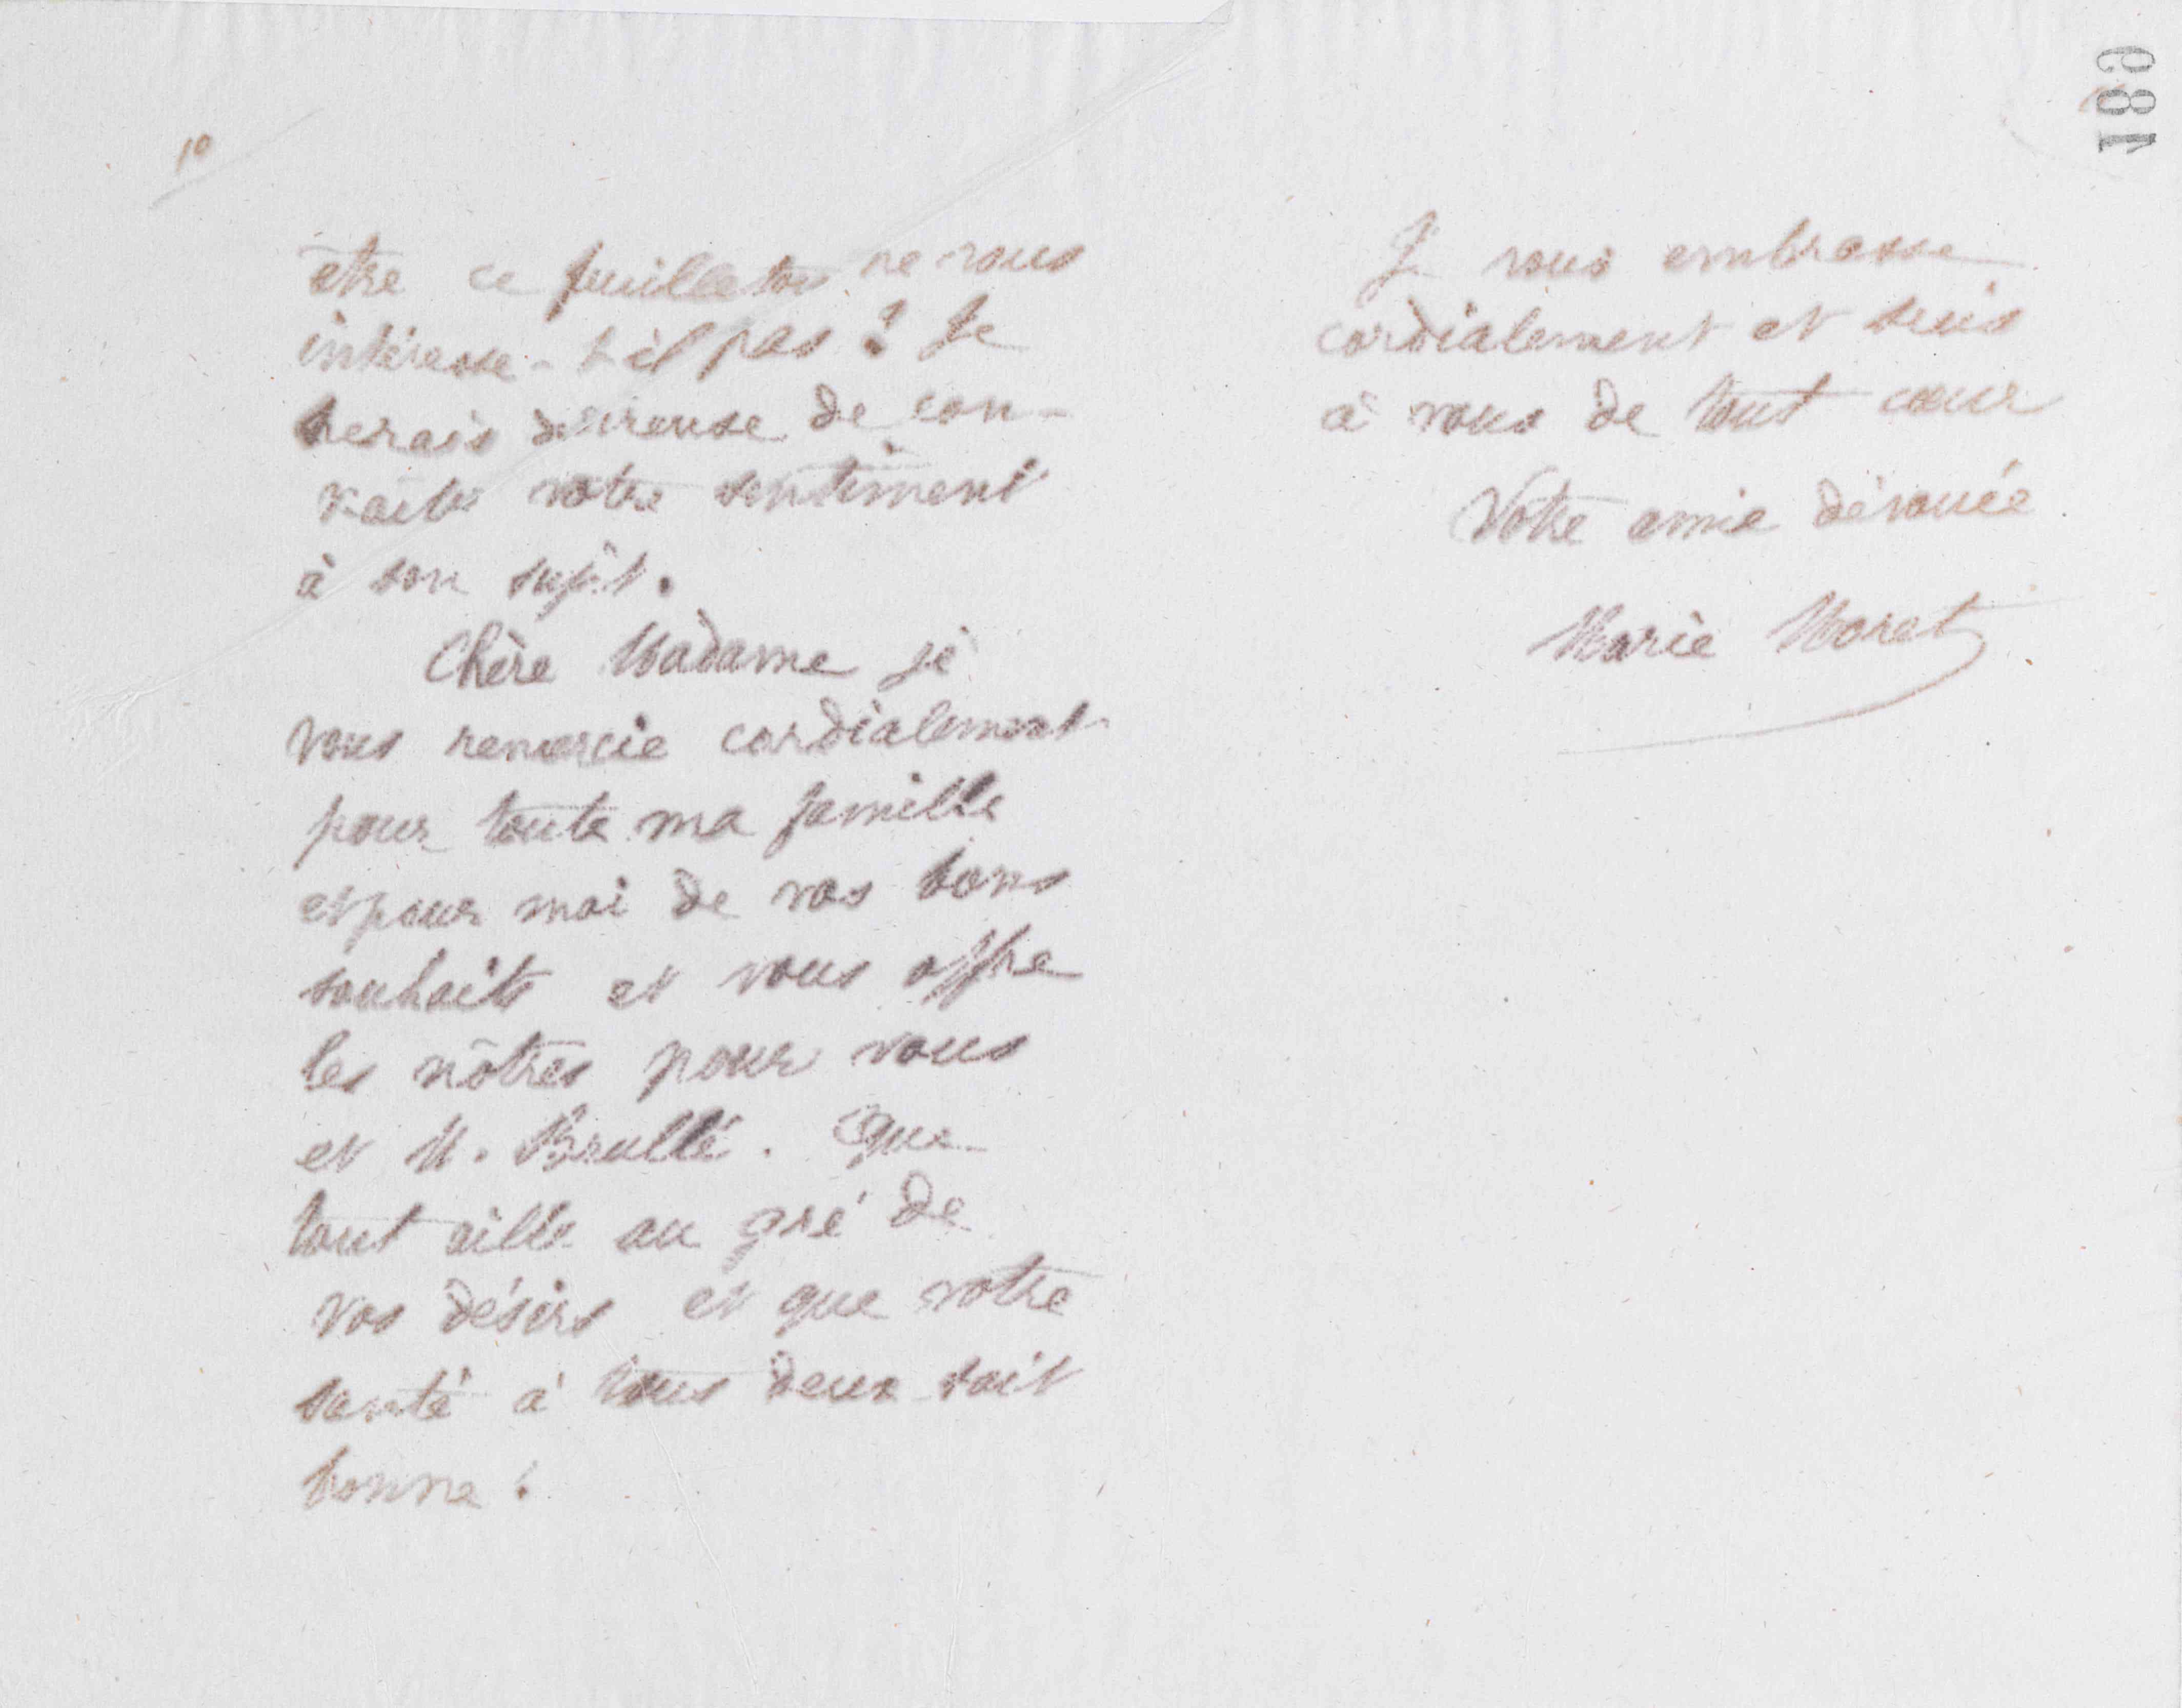 10
être ce feuilleton ne vous
intéresse-t-il pas ? Je
serais désireuse de con-
naître votre sentiment
à son sujet.
Chère Madame je
vous remercie cordialement
pour toute ma famille
et pour moi de vos bons
souhaits et vous offre
les nôtres pour vous
et M. Brullé. Que
tout aille au gré de
vos désirs et que votre
santé à tous deux soit
bonne !
189
Je vous embrasse
cordialement et suis
à vous de tout cœur
Votre amie dévouée
Marie Moret